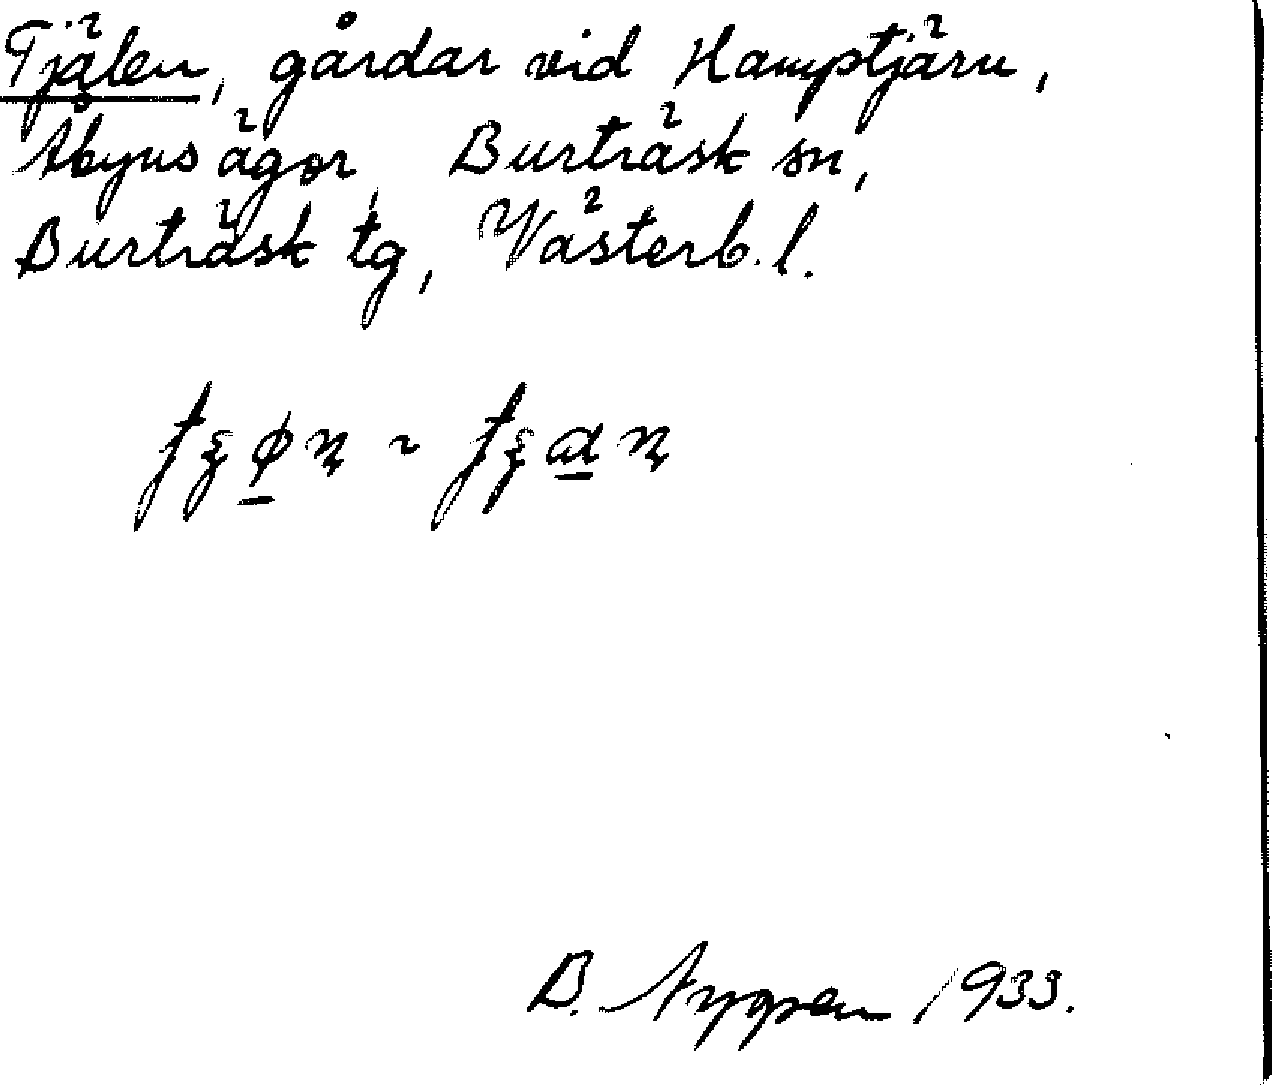 Tjälen, gårdar vid Hamptjärn,
Åbyns ägor, Burträsk sn,
Burträsk tg, Västerb. l.
B. Nygren 1933.